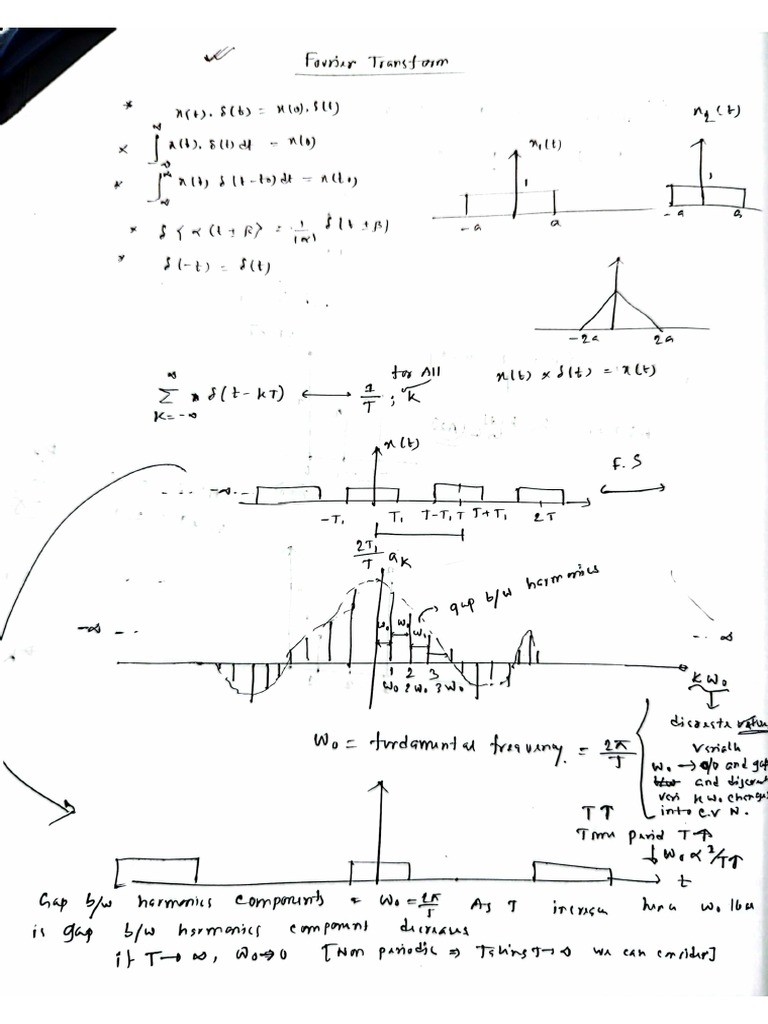 Fourier Transform
* x(t). δ(t) = x(0). δ(t)
* ∫_{-∞}^{∞} x(t). δ(t) dt = x(0)
* ∫_{-∞}^{∞} x(t) δ(t-t0) dt = x(t0)
* δ{α(t+β} = 1/|α| δ(t+β)
* δ(-t) = δ(t)
x1(t)
1
-a a
x2(t)
1
-a a
-2a 2a
∑_{K=-∞}^{∞} δ(t-kT) ⟷ 1/T ; K
for All
x(t) × δ(t) = x(t)
x(t)
F.S
... -∞..
-T1 T1 T-T1 T T+T1 2T
2T1/T aK
gap b/w harmonics
-∞ ...
ω0 ω0 ω0
.. ∞
1 2 3
ω0 2ω0 3ω0
kω0
discrete
ω0 = fundamental frequency = 2π/T
ω0 → 0 and gap
and
kω0
into C.V
T↑
Time period T↑
↓ω0 ∝ 2/T↑
t
Gap b/w harmonics components = ω0 = 2π/T As T increase hence ω0
is gap b/w harmonics component decreases
if T→∞, ω0→0 [Non periodic ⇒ Taking T→∞ we can consider]